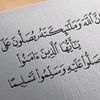 إِنَّ اللَّهَ وَمَلَٰئِكَتَهُ يُصَلُّونَ عَلَى
يَٰأَيُّهَا الَّذِينَ ءَامَنُوا
صَلُّوا عَلَيْهِ وَسَلِّمُوا تَسْلِيمًا